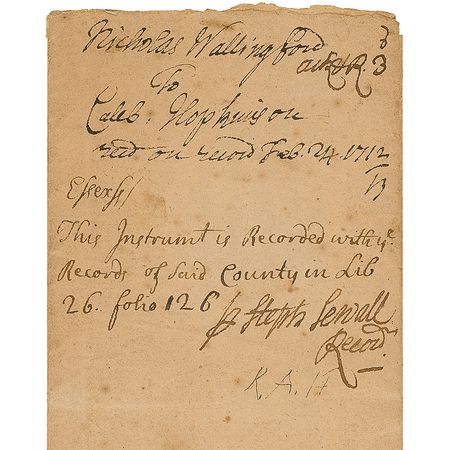 Nicholas Wallingford
ackd R. 3
To
Caleb: Hopkinson
recd on record Feb. 24. 1712
/13
Essexss/
This Instrumt is Recorded with ye
Records of said County in Lib
26. folio 126
p Steph Sewall
Record
R. A. H